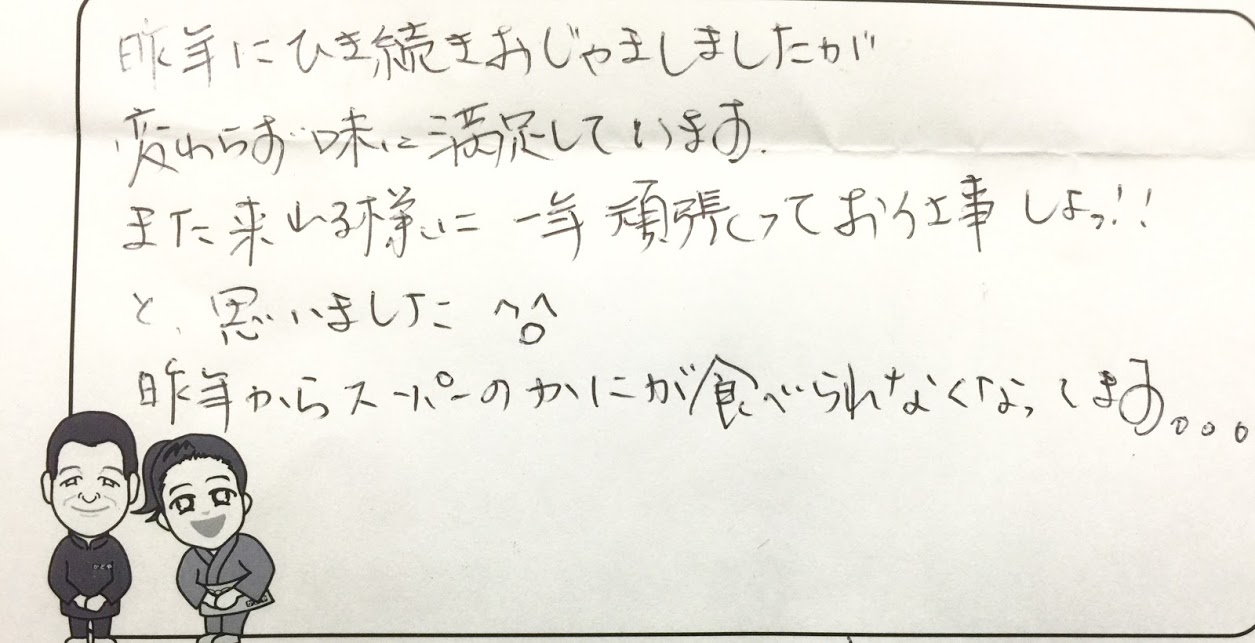 昨年にひき続きおじゃましましたが
変わらず味に満足しています.
また来れる様に一年頑張ってお仕事しよっ!!
と、思いました ^o^
昨年からスーパーのかにが食べられなくなってます。。。